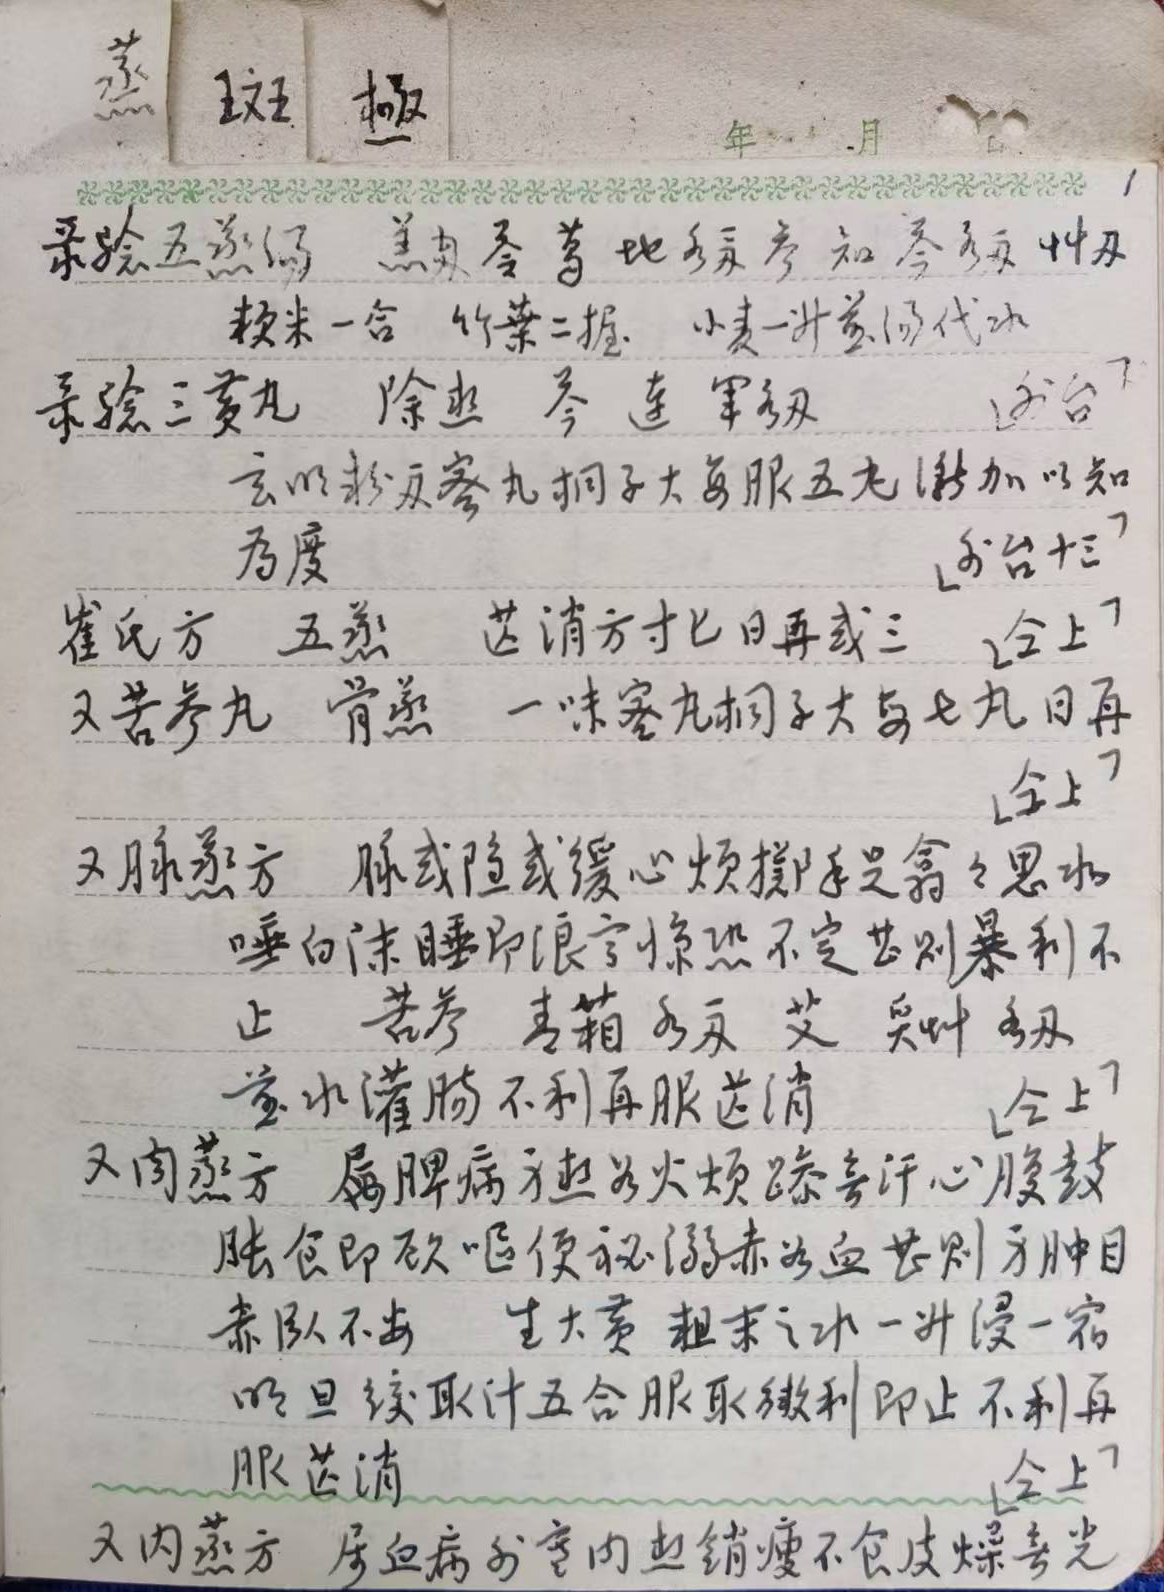 蒸 斑 極
年 月 日
1
录验五蒸汤 羔 苓 葛 地 参 知 芩 艸
粳米一合 竹葉二握 小麦一升煮汤代水
录验三黄丸 除热 芩 連 軍 「外台」
玄明粉 蜜丸桐子大每服五丸漸加以知
为度 「外台十三」
崔氏方 五蒸 芒消方寸匕日再或三 「仝上」
又苦参丸 骨蒸 一味蜜丸桐子大每七丸日再
「仝上」
又脉蒸方 脉或隐或缓心烦擲手足翕々思水
唾白沫睡即浪言惊恐不定甚则暴利不
止 苦参 青葙 艾 艸
煮水灌肠不利再服芒消 「仝上」
又肉蒸方 属脾病身热如火烦躁無汗心腹鼓
胀食即欲嘔便秘溺赤如血甚则身肿目
赤卧不安 生大黄 粗末之水一升浸一宿
明旦绞取汁五合服取微利即止不利再
服芒消 「仝上」
又内蒸方 属血病外寒内热銷瘦不食皮燥無光